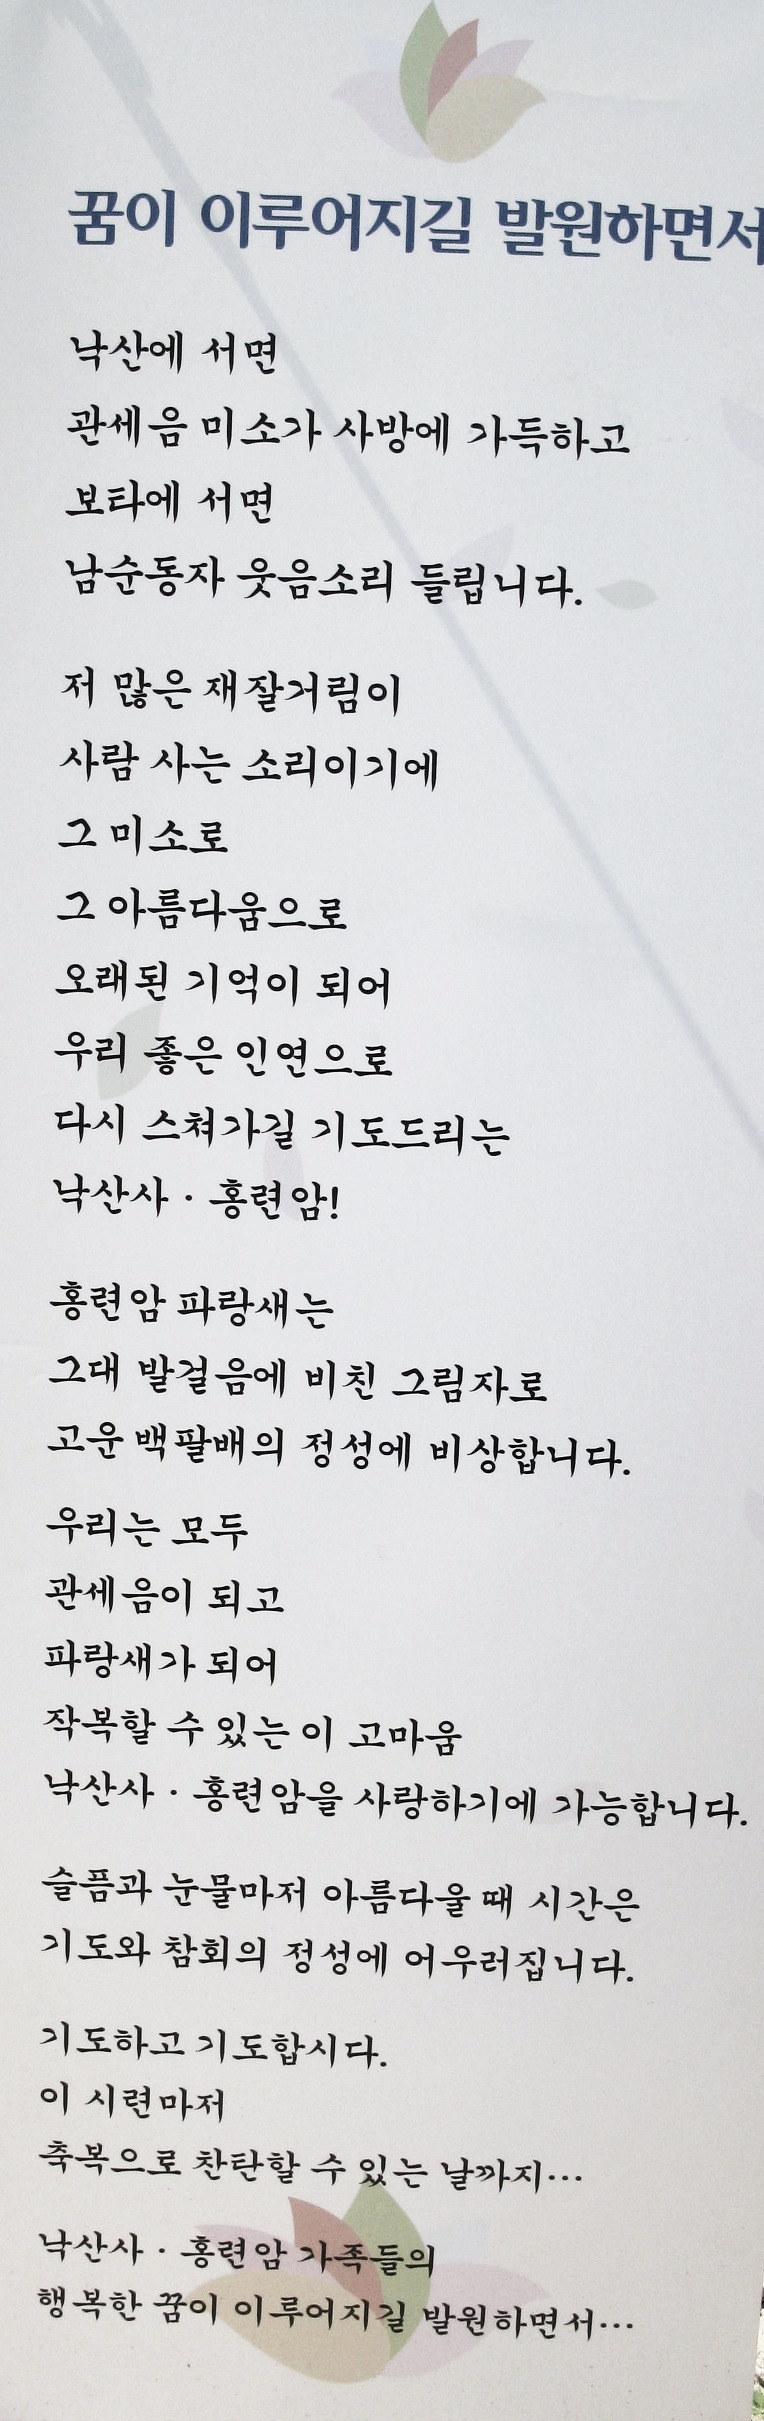 꿈이 이루어지길 발원하면서
낙산에 서면
관세음 미소가 사방에 가득하고
보타에 서면
남순동자 웃음소리 들립니다.
저 많은 재잘거림이
사람 사는 소리이기에
그 미소로
그 아름다움으로
오래된 기억이 되어
우리 좋은 인연으로
다시 스쳐가길 기도드리는
낙산사 · 홍련암!
홍련암 파랑새는
그대 발걸음에 비친 그림자로
고운 백팔배의 정성에 비상합니다.
우리는 모두
관세음이 되고
파랑새가 되어
작복할 수 있는 이 고마움
낙산사 · 홍련암을 사랑하기에 가능합니다.
슬픔과 눈물마저 아름다울 때 시간은
기도와 참회의 정성에 어우러집니다.
기도하고 기도합시다.
이 시련마저
축복으로 찬탄할 수 있는 날까지…
낙산사 · 홍련암 가족들의
행복한 꿈이 이루어지길 발원하면서…